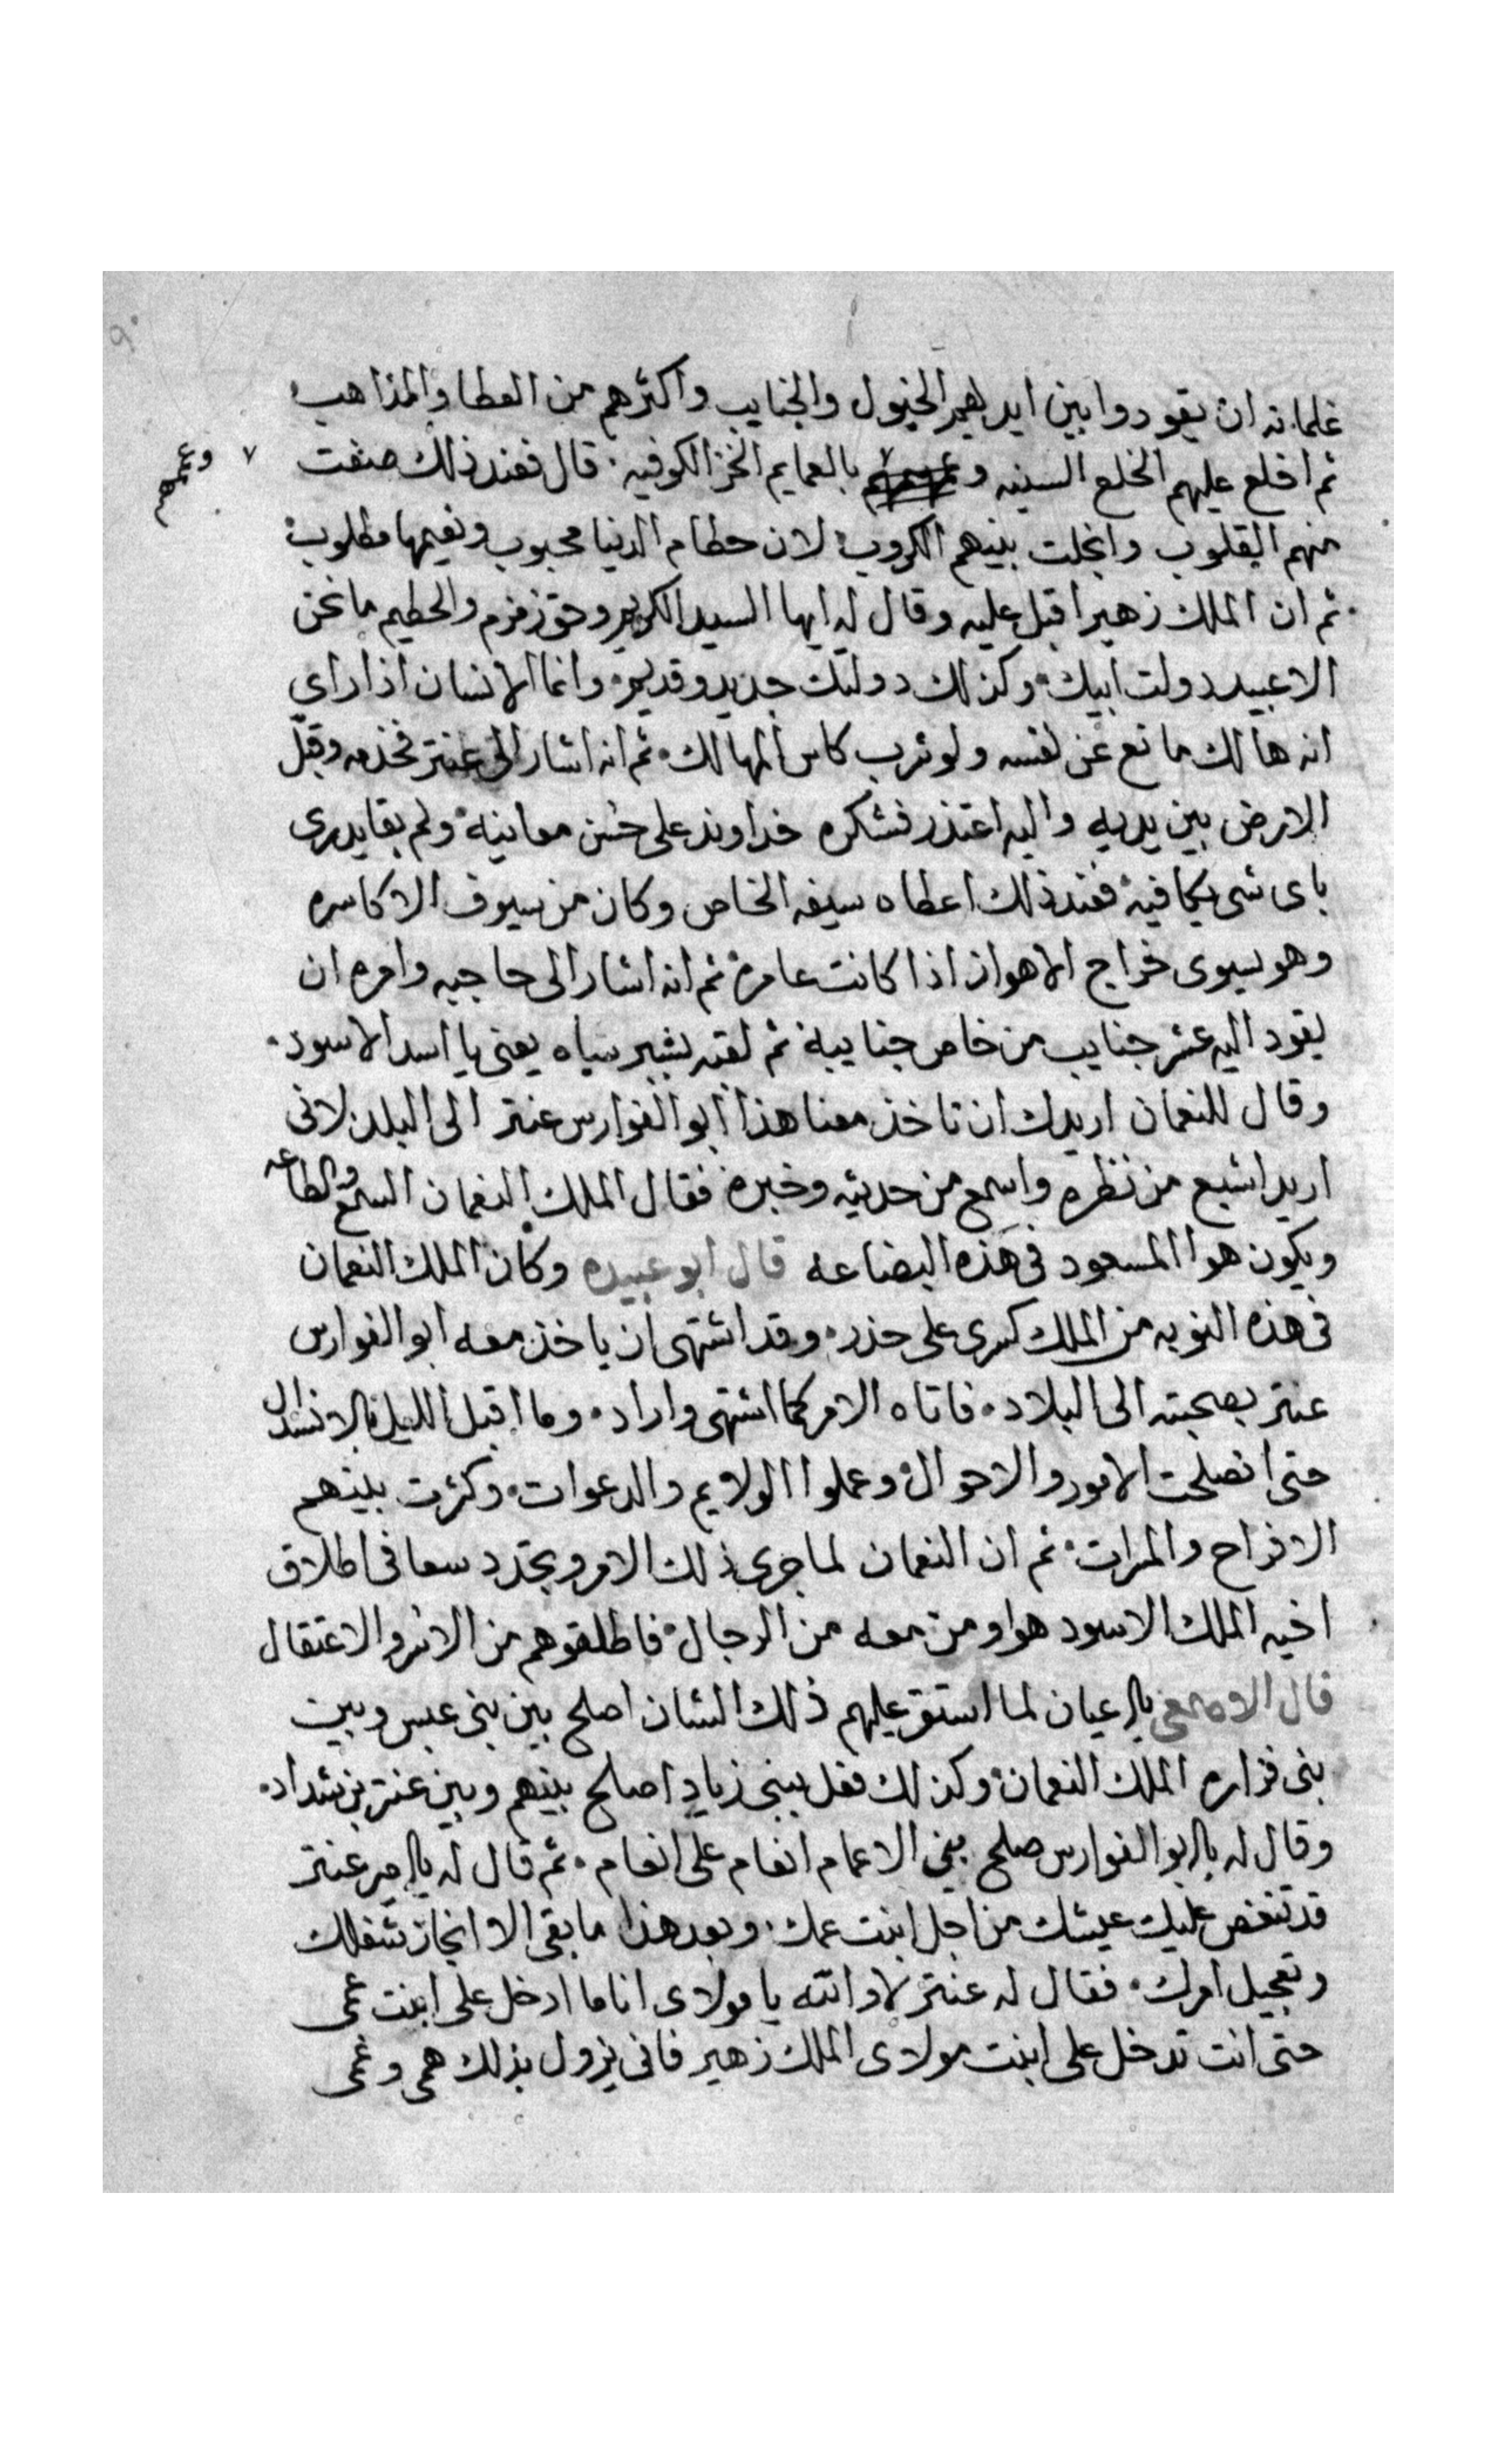 غلمانه ان يقودوا بين ايديهم الخيول والجنايب واكثرهم من العطا والمذاهب
ثم اخلع عليهم الخلع السنيه وعممهم بالعمايم الخز الكوفيه · قال فعند ذلك صفت
وعممهم
منهم القلوب وانجلت بينهم الكروب لان حطام الدنيا محبوب ونعيمها مطلوب
ثم ان الملك زهير اقبل عليه وقال له ايها السيد الكريم وحق زمزم والحطيم ما نحن
الا عبيد دولت ابيك وكذلك دولتك جديد وقديم وانما الانسان اذا راي
انه هالك مانع عن نفسه ولو شرب كاس المهالك ثم انه اشار الى عنتر فخدمه وقبّل
الارض بين يديه واليه اعتذر فشكره خداوند على حسن معانيه ولم بقا يدري
باى شى يكافيه فعند ذلك اعطاه سيفه الخاص وكان من سيوف الاكاسره
وهو يسوى خراج الاهواز اذا كانت عامره ثم انه اشار الى حاجبه وامره ان
يقود اليه عشر جنايب من خاص جنايبة ثم لقبه بشير سياه يعنى يا اسد الاسود
وقال للنعمان اريدك ان تاخذ معنا هذا ابو الفوارس عنتر الى البلد لانى
اريد اشبع من نظره واسمع من حديثه وخبره فقال الملك النعمان السمع والطاعه
ويكون هوا المسعود في هذه البضاعه قال ابو عبيده وكان الملك النعمان
في هذه النوبه من الملك كسرى على حذر وقد اشتهى ان ياخذ معه ابو الفوارس
عنتر بصحبته الى البلاد فاتاه الامر كما اشتهى واراد وما اقبل الليل بالانسدال
حتى انصلحت الامور والاحوال وعملوا الولايم والدعوات وكثرت بينهم
الافراح والمرات ثم ان النعمان لما جرى ذلك الامر وتجدد سعا في اطلاق
اخيه الملك الاسود هوا ومن معه من الرجال فاطلقوهم من الاسر والاعتقال
قال الاصمعي يا اعيان لما استقر عليهم ذلك الشان اصلح بين بنى عبس وبين
بنى فزاره الملك النعمان وكذلك فعل ببنى زياد اصلح بينهم وبين عنتر بن شداد
وقال له يا ابو الفوارس صلح بني الاعمام انعام على انعام ثم قال له يا امير عنتر
قد تنغص عليك عيشك من اجل ابنت عمك وبعد هذا ما بقى الا انجاز شغلك
وتعجيل امرك فقال له عنتر لا والله يا مولاى انا ما ادخل على ابنت عمى
حتى انت تدخل على ابنت مولاى الملك زهير فانى يزول بذلك همى وغمى